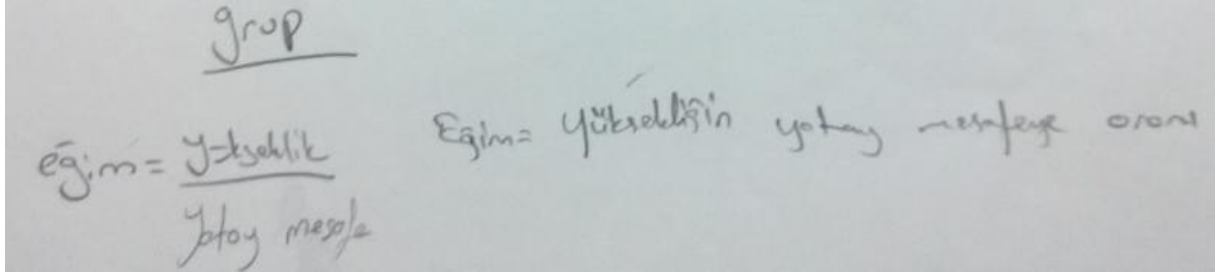 grup
eğim = yükseklik
yatay mesafe
Eğim = Yüksekliğin yatay mesafeye oranı